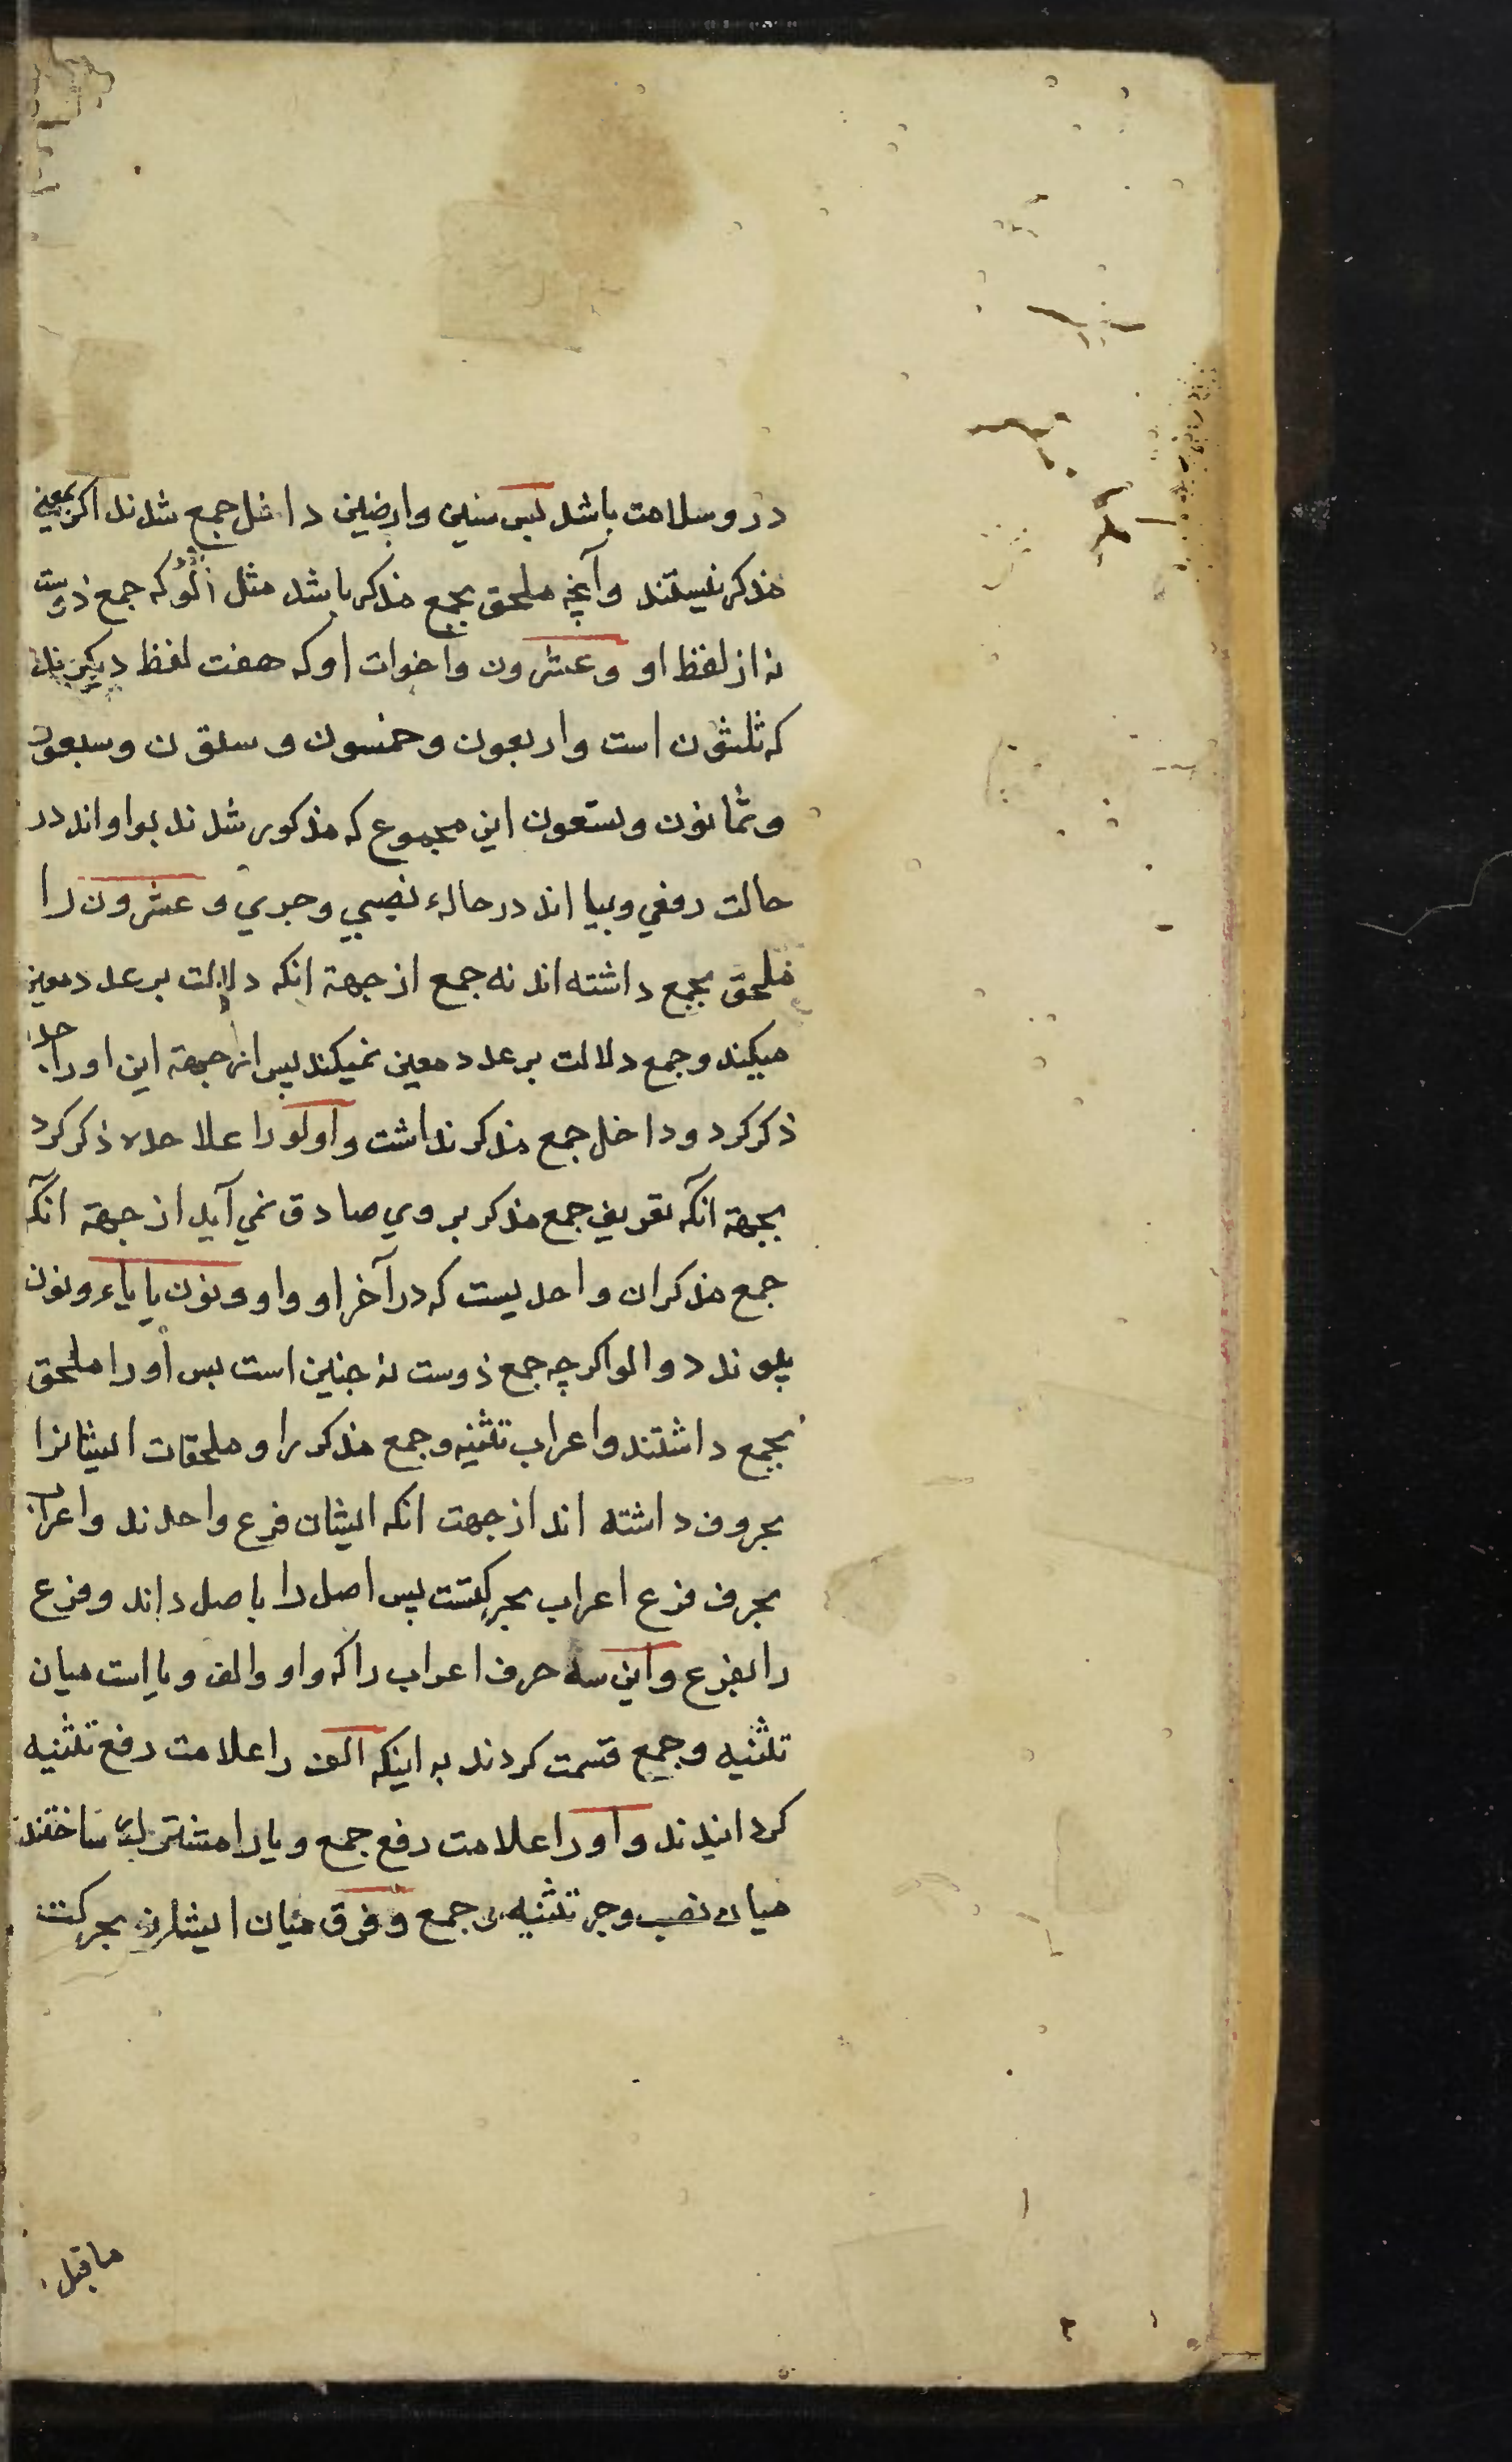 در و سلامت باشد پس سنین وارضین داخل جمع شدند اکر بمعنی
مذکر نیستند وآنچه ملحق بجمع مذکر باشد مثل اُلُو که جمع ذوست
نه از لفظ او و عشرون واخوات او که هفت لفظ دیکرند
که ثلثون است واربعون وخمسون وستون وسبعون
وثمانون وتسعون این مجموع که مذکور شدند بواواند در
حالت رفعی وبیا اند در حالهء نصبی وجری و عشرون را
ملحق بجمع داشته اند نه جمع از جهة انکه دلالت بر عدد معین
میکند وجمع دلالت بر عدد معین نمیکند پس از جهة این او را جدا
ذکر کرد و داخل جمع مذکر نداشت واولو را علاحده ذکر کرد
بجهة آنکه تعریف جمع مذکر بر وی صادق نمی آید از جهة آنکه
جمع مذکر ان واحدیست که در آخر او واو ونون یا یاء ونون
پیوندد والو اکرچه جمع ذوست نه چنین است پس او را ملحق
بجمع داشتند واعراب تثنیه وجمع مذکر را و ملحقات ایشانرا
بحروف داشته اند از جهت انکه ایشان فرع واحدند واعراب
بحرف فرع اعراب بحرکتست پس اصل را باصل داند وفرع
را بفرع واین سه حرف اعراب را که واو والف ویا است میان
تثنیه وجمع قسمت کردند به اینکه الف را علامت رفع تثنیه
کردانیدند واو را علامت رفع جمع ویا را مشترک ساختند
میان نصب وجر تثنیه و جمع وفرق میان ایشان بحرکت
ماقبل